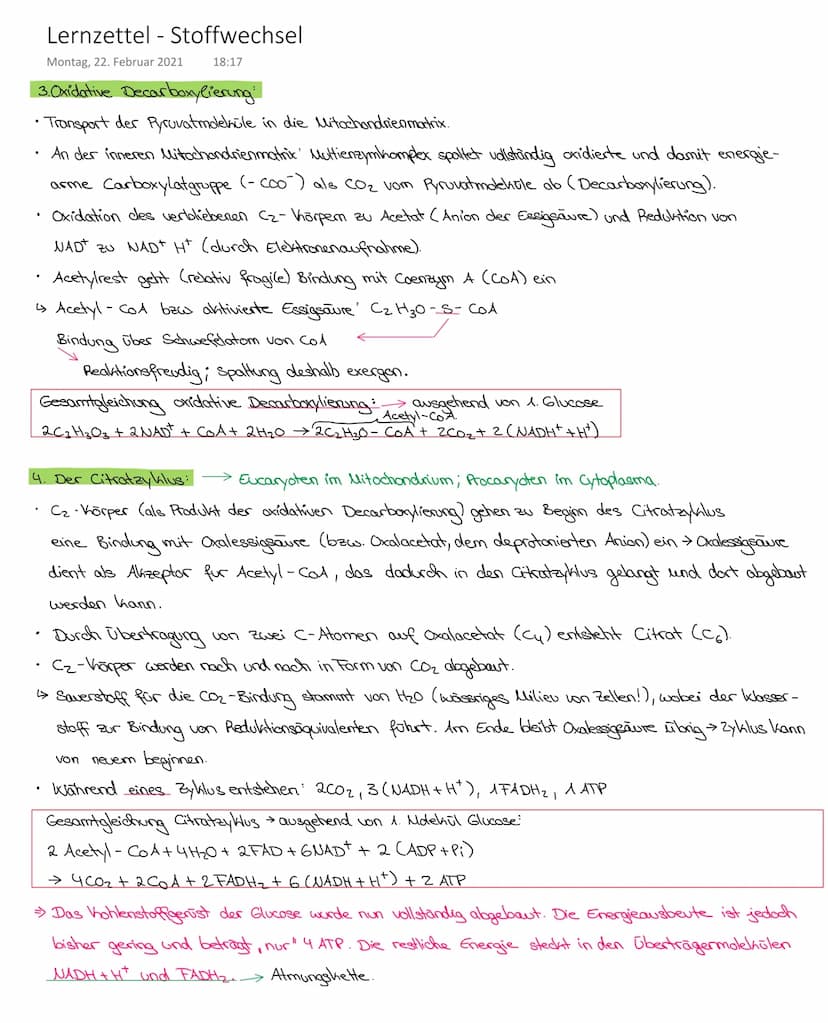 Lernzettel - Stoffwechsel
Montag, 22. Februar 2021 18:17
3. Oxidative Decarboxylierung:
· Transport der Pyruvatmoleküle in die Mitochondrienmatrix.
· An der inneren Mitochondrienmatrix: Multienzymkomplex spaltet vollständig oxidierte und damit energie-
arme Carboxylatgruppe (-COO⁻) als CO₂ vom Pyruvatmolekül ab (Decarboxylierung).
· Oxidation des verbliebenen C₂-Körpern zu Acetat (Anion der Essigsäure) und Reduktion von
NAD⁺ zu NAD⁺ H⁺ (durch Elektronenaufnahme).
· Acetylrest geht (relativ fragile) Bindung mit Coenzym A (CoA) ein
↳ Acetyl-CoA bzw aktivierte Essigsäure: C₂H₃O-S-CoA
Bindung über Schwefelatom von CoA
Reaktionsfreudig; Spaltung deshalb exergon.
Gesamtgleichung oxidative Decarboxylierung: → ausgehend von 1. Glucose
Acetyl-CoA
2C₃H₃O₃ + 2NAD⁺ + CoA + 2H₂O → 2C₂H₃O-CoA + 2CO₂ + 2(NADH⁺+H⁺)
4. Der Citratzyklus: → Eucaryoten im Mitochondrium; Procaryoten im Cytoplasma.
· C₂-Körper (als Produkt der oxidativen Decarboxylierung) gehen zu Beginn des Citratzyklus
eine Bindung mit Oxalessigsäure (bzw. Oxalacetat, dem deprotonierten Anion) ein → Oxalessigsäure
dient als Akzeptor für Acetyl-CoA, das dadurch in den Citratzyklus gelangt und dort abgebaut
werden kann.
· Durch Übertragung von zwei C-Atomen auf Oxalacetat (C₄) entsteht Citrat (C₆).
· C₂-Körper werden nach und nach in Form von CO₂ abgebaut.
↳ Sauerstoff für die CO₂-Bindung stammt von H₂O (wässriges Milieu von Zellen!), wobei der Wasser-
stoff zur Bindung von Reduktionsäquivalenten führt. Am Ende bleibt Oxalessigsäure übrig → Zyklus kann
von neuem beginnen.
· Während eines Zyklus entstehen: 2CO₂, 3(NADH+H⁺), 1FADH₂, 1 ATP
Gesamtgleichung Citratzyklus → ausgehend von 1. Molekül Glucose:
2 Acetyl-CoA + 4H₂O + 2FAD + 6NAD⁺ + 2 (ADP+Pi)
→ 4CO₂ + 2CoA + 2FADH₂ + 6(NADH+H⁺) + 2 ATP
⇒ Das Kohlenstoffgerüst der Glucose wurde nun vollständig abgebaut. Die Energieausbeute ist jedoch
bisher gering und beträgt „nur“ 4 ATP. Die restliche Energie steckt in den Überträgermolekülen
NADH+H⁺ und FADH₂. → Atmungskette.